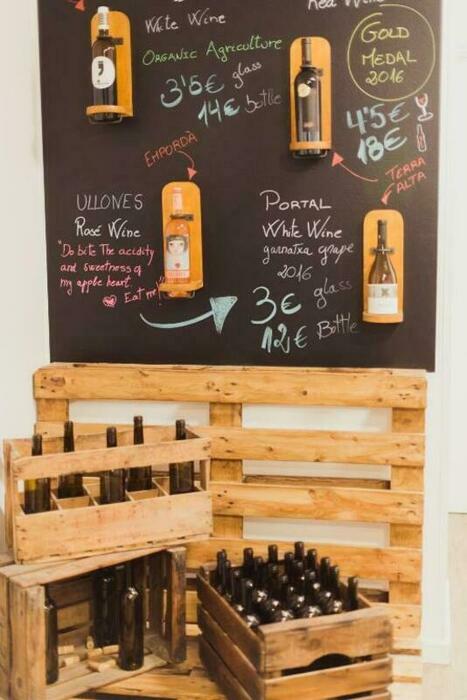 White Wine
Red Wine
Organic Agriculture
3'5€ glass
14€ bottle
GOLD
MEDAL
2016
4'5€
18€
EMPORDÀ
TERRA
ALTA
ULLONES
Rosé Wine
"Do bite The acidity
and sweetness of
my apple heart.
Eat me!"
PORTAL
White Wine
garnatxa grape
2016
3€ glass
12€ Bottle